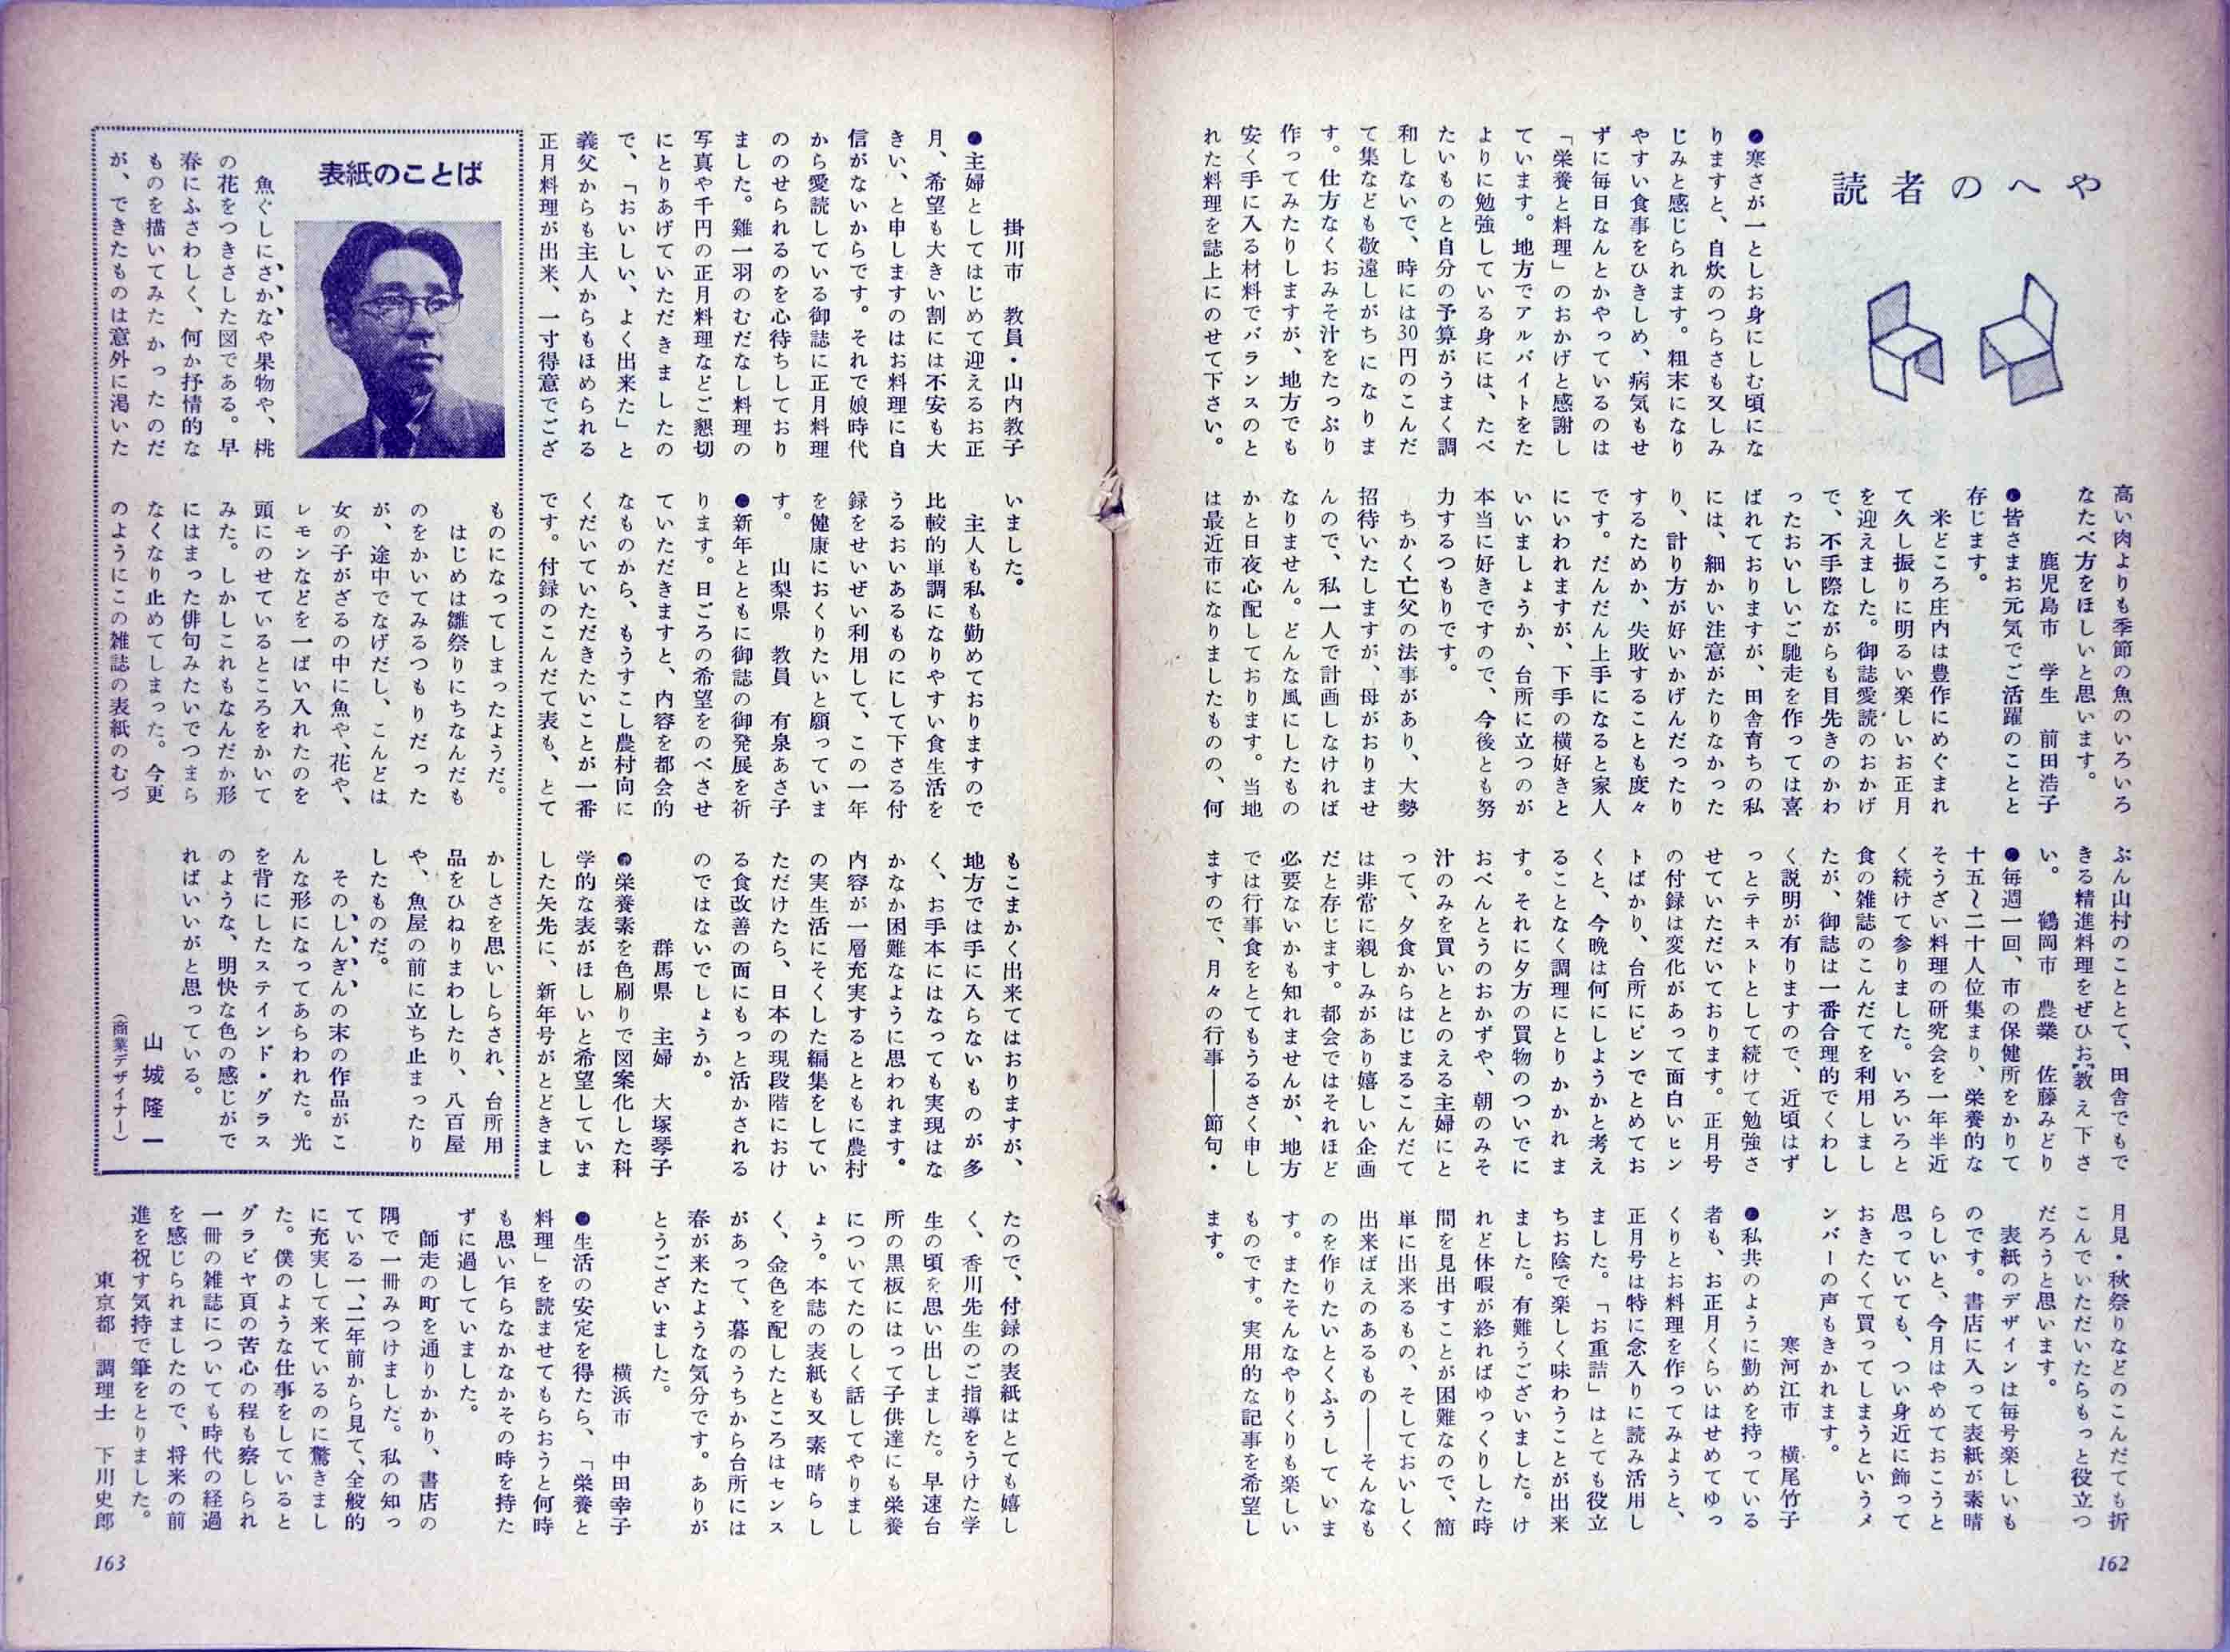 読者のへや
●寒さが一としお身にしむ頃にな
りますと、自炊のつらさも又しみ
じみと感じられます。粗末になり
やすい食事をひきしめ、病気もせ
ずに毎日なんとかやっているのは
「栄養と料理」のおかげと感謝し
ています。地方でアルバイトをた
よりに勉強している身には、たべ
たいものと自分の予算がうまく調
和しないで、時には30円のこんだ
て集なども敬遠しがちになりま
す。仕方なくおみそ汁をたっぷり
作ってみたりしますが、地方でも
安く手に入る材料でバランスのと
れた料理を誌上にのせて下さい。
高い肉よりも季節の魚のいろいろ
なたべ方をほしいと思います。
鹿児島市　学生　前田浩子
●皆さまお元気でご活躍のことと
存じます。
米どころ庄内は豊作にめぐまれ
て久し振りに明るい楽しいお正月
を迎えました。御誌愛読のおかげ
で、不手際ながらも目先きのかわ
ったおいしいご馳走を作っては喜
ばれておりますが、田舎育ちの私
には、細かい注意がたりなかった
り、計り方が好いかげんだったり
するためか、失敗することも度々
です。だんだん上手になると家人
にいわれますが、下手の横好きと
いいましょうか、台所に立つのが
本当に好きですので、今後とも努
力するつもりです。
ちかく亡父の法事があり、大勢
招待いたしますが、母がおりませ
んので、私一人で計画しなければ
なりません。どんな風にしたもの
かと日夜心配しております。当地
は最近市になりましたものの、何
ぶん山村のこととて、田舎でもで
きる精進料理をぜひお教え下さ
い。　鶴岡市　農業　佐藤みどり
●毎週一回、市の保健所をかりて
十五〜二十人位集まり、栄養的な
そうざい料理の研究会を一年半近
く続けて参りました。いろいろと
食の雑誌のこんだてを利用しまし
たが、御誌は一番合理的でくわし
く説明が有りますので、近頃はず
っとテキストとして続けて勉強さ
せていただいております。正月号
の付録は変化があって面白いヒン
トばかり、台所にピンでとめてお
くと、今晩は何にしようかと考え
ることなく調理にとりかかれま
す。それに夕方の買物のついでに
おべんとうのおかずや、朝のみそ
汁のみを買いととのえる主婦にと
って、夕食からはじまるこんだて
は非常に親しみがあり嬉しい企画
だと存じます。都会ではそれほど
必要ないかも知れませんが、地方
では行事食をとてもうるさく申し
ますので、月々の行事――節句・
月見・秋祭りなどのこんだても折
こんでいただいたらもっと役立つ
だろうと思います。
表紙のデザインは毎号楽しいも
のです。書店に入って表紙が素晴
らしいと、今月はやめておこうと
思っていても、つい身近に飾って
おきたくて買ってしまうというメ
ンバーの声もきかれます。
寒河江市　横尾竹子
●私共のように勤めを持っている
者も、お正月くらいはせめてゆっ
くりとお料理を作ってみようと、
正月号は特に念入りに読み活用し
ました。「お重詰」はとても役立
ちお陰で楽しく味わうことが出来
ました。有難うございました。け
れど休暇が終ればゆっくりした時
間を見出すことが困難なので、簡
単に出来るもの、そしておいしく
出来ばえのあるもの――そんなも
のを作りたいとくふうしていま
す。またそんなやりくりも楽しい
ものです。実用的な記事を希望し
ます。
162
掛川市　教員・山内教子
●主婦としてはじめて迎えるお正
月、希望も大きい割には不安も大
きい、と申しますのはお料理に自
信がないからです。それで娘時代
から愛読している御誌に正月料理
ののせられるのを心待ちしており
ました。雞一羽のむだなし料理の
写真や千円の正月料理などご懇切
にとりあげていただきましたの
で、「おいしい、よく出来た」と
義父からも主人からもほめられる
正月料理が出来、一寸得意でござ
いました。
主人も私も勤めておりますので
比較的単調になりやすい食生活を
うるおいあるものにして下さる付
録をせいぜい利用して、この一年
を健康におくりたいと願っていま
す。　山梨県　教員　有泉あさ子
●新年とともに御誌の御発展を祈
ります。日ごろの希望をのべさせ
ていただきますと、内容を都会的
なものから、もうすこし農村向に
くだいていただきたいことが一番
です。付録のこんだて表も、とて
もこまかく出来てはおりますが、
地方では手に入らないものが多
く、お手本にはなっても実現はな
かなか困難なように思われます。
内容が一層充実するとともに農村
の実生活にそくした編集をしてい
ただけたら、日本の現段階におけ
る食改善の面にもっと活かされる
のではないでしょうか。
群馬県　主婦　大塚琴子
●栄養素を色刷りで図案化した科
学的な表がほしいと希望していま
した矢先に、新年号がとどきまし
たので、付録の表紙はとても嬉し
く、香川先生のご指導をうけた学
生の頃を思い出しました。早速台
所の黒板にはって子供達にも栄養
についてたのしく話してやりまし
ょう。本誌の表紙も又素晴らし
く、金色を配したところはセンス
があって、暮のうちから台所には
春が来たような気分です。ありが
とうございました。
横浜市　中田幸子
●生活の安定を得たら、「栄養と
料理」を読ませてもらおうと何時
も思い乍らなかなかその時を持た
ずに過していました。
師走の町を通りかかり、書店の
隅で一冊みつけました。私の知っ
ている一、二年前から見て、全般的
に充実して来ているのに驚きまし
た。僕のような仕事をしていると
グラビヤ頁の苦心の程も察しられ
一冊の雑誌についても時代の経過
を感じられましたので、将来の前
進を祝す気持で筆をとりました。
東京都　調理士　下川史郎
表紙のことば
魚ぐしにさかなや果物や、桃
の花をつきさした図である。早
春にふさわしく、何か抒情的な
ものを描いてみたかったのだ
が、できたものは意外に渇いた
ものになってしまったようだ。
はじめは雛祭りにちなんだも
のをかいてみるつもりだった
が、途中でなげだし、こんどは
女の子がざるの中に魚や、花や、
レモンなどを一ぱい入れたのを
頭にのせているところをかいて
みた。しかしこれもなんだか形
にはまった俳句みたいでつまら
なくなり止めてしまった。今更
のようにこの雑誌の表紙のむづ
かしさを思いしらされ、台所用
品をひねりまわしたり、八百屋
や、魚屋の前に立ち止まったり
したものだ。
そのしんぎんの末の作品がこ
んな形になってあらわれた。光
を背にしたステインド・グラス
のような、明快な色の感じがで
ればいいがと思っている。
山城隆一
（商業デザイナー）
163